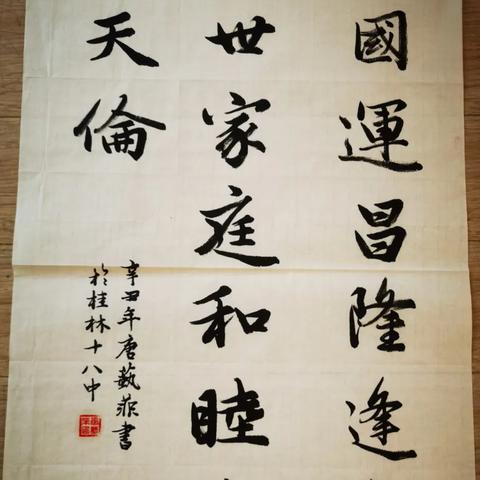 國運昌隆逢
世家庭和睦
天倫
辛丑年唐藝菲書
於桂林十八中